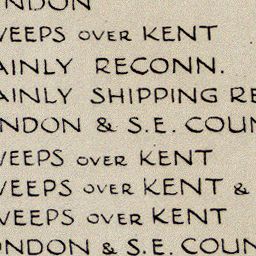 NDON
WEEPS OVER KENT
AINLY RECONN.
AINLY SHIPPING RE
ONDON & S.E. COUN
WEEPS OVER KENT
WEEPS OVER KENT &
WEEPS OVER KENT
ONDON & S.E. COUN